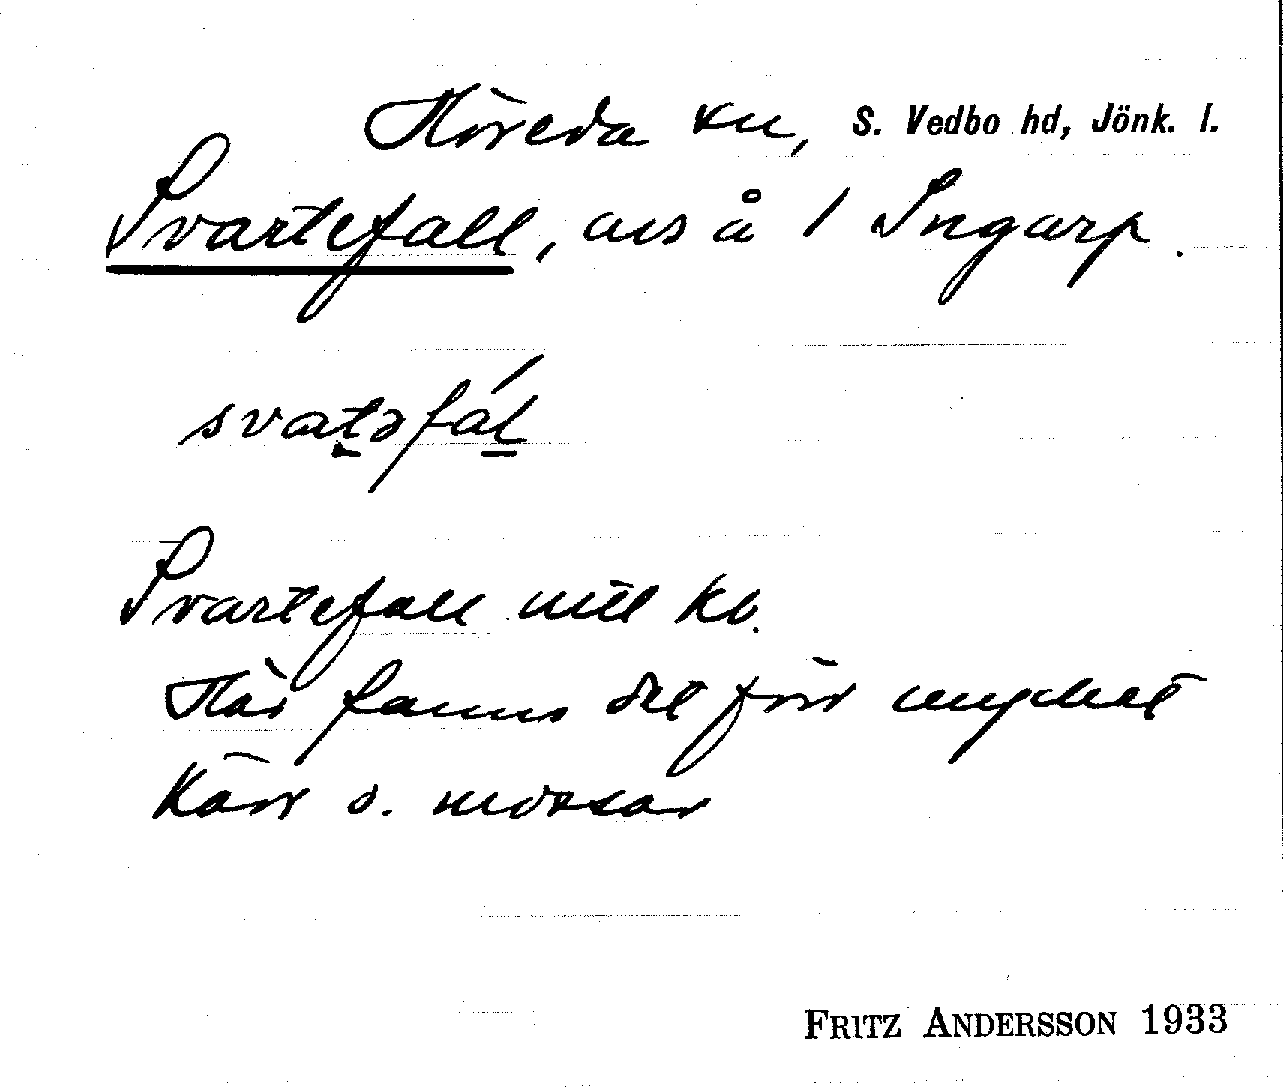 Höreda sn, S. Vedbo hd, Jönk. l.
Svartefall, avs å 1 Ingarp.
svatəfál
Svartefall mtl kb.
Här fanns det förr mycket
kärr o. mossar
FRITZ ANDERSSON 1933